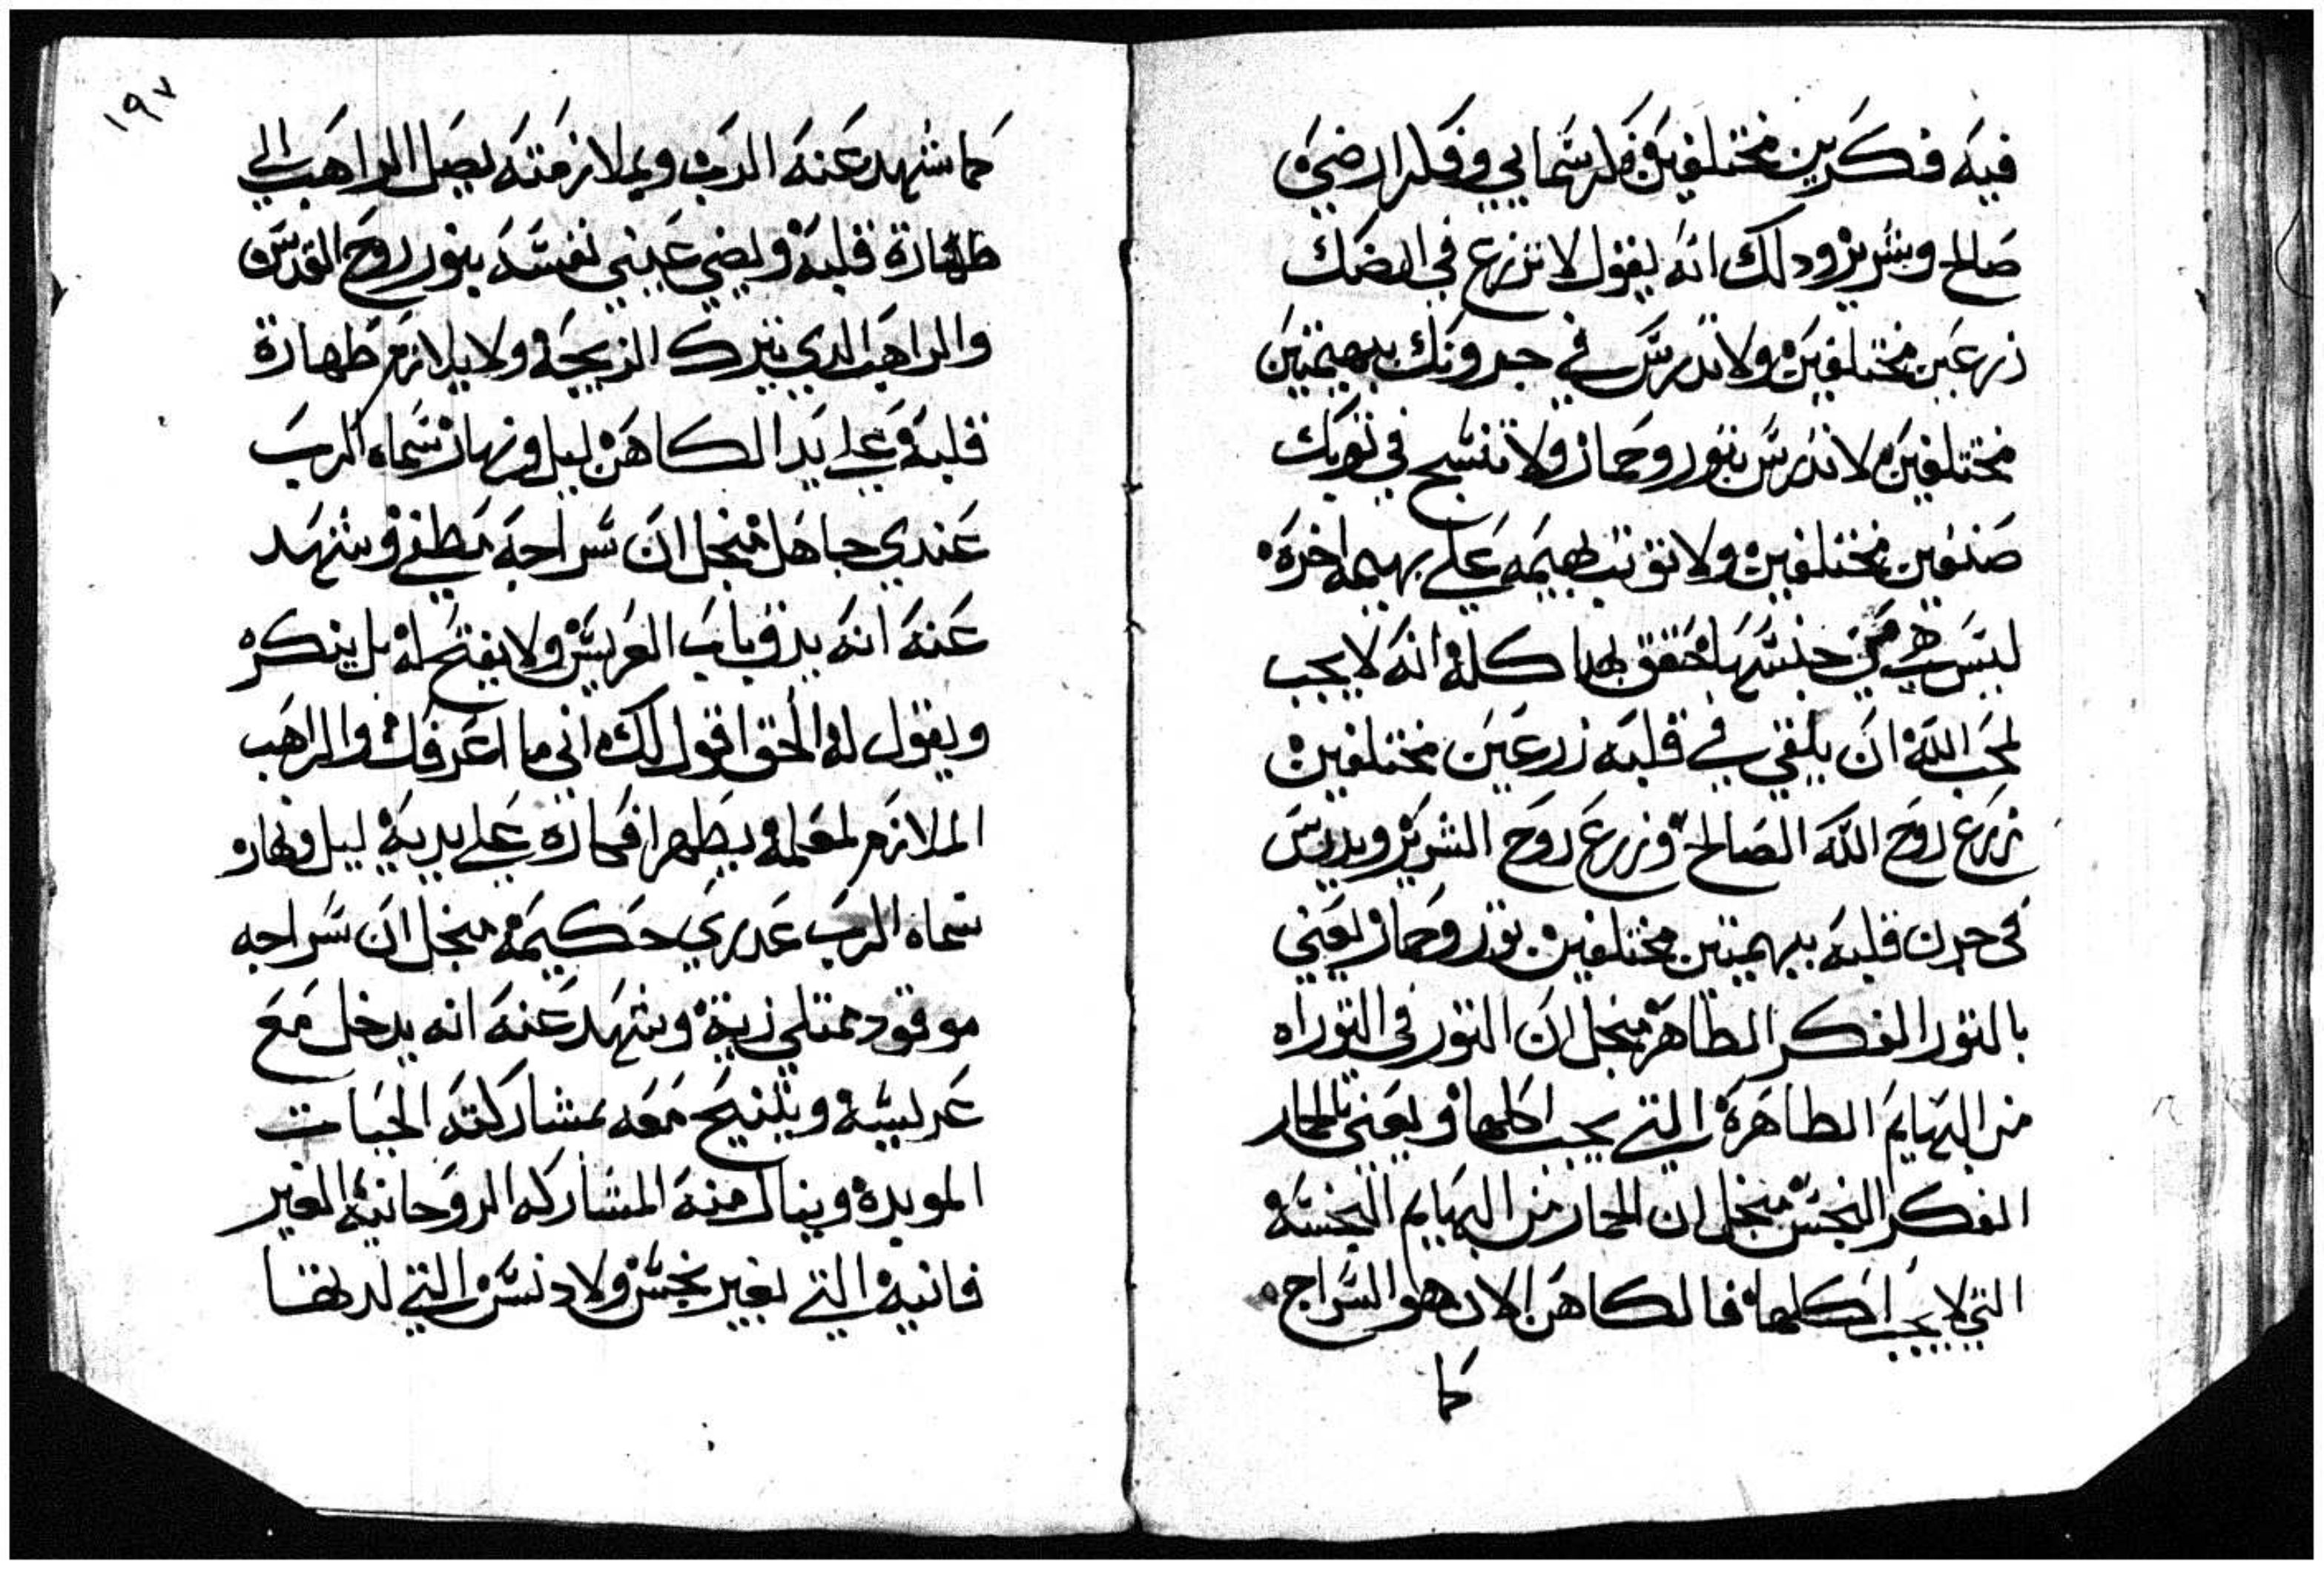 فيه فكرين مختلفين فكر سمايي وفكر ارضي
صالح وشرير ودلك انه يقول لا تزرع في ارضك
زرعين مختلفين ولا تدرس في جرونك ببهيمتين
مختلفين لا تدرس بتور وحمار ولا تنسج في توبك
صنفين مختلفين ولا توتب بهيمه علي بهيمه اخره
ليس هي من جنسها حقق بهدا كله انه لا يجب
لمحب الله ان يلقي في قلبه زرعين مختلفين
زرع روح الله الصالح وزرع روح الشرير ويدرس
في جرن قلبه ببهيمتين مختلفين بتور وحمار يعني
بالتور الفكر الطاهر منجل ان التور في التوراه
من البهايم الطاهرة التي يجب اكلها ويعني بالحمار
الفكر النجس منجل ان الحمار من البهايم النجسه
التي لا يجب اكلها فالكاهن الان هو السراج
كما
١٩٧
كما شهد عنه الرب وبملازمته يصل الراهب الي
طهارة قلبه ويضي عيني نفسه بنور روح القدس
والراهب الدي يترك الزيجه ولا يلازم طهارة
قلبه علي يد الكاهن ليل ونهار سماه الرب
عندي جاهل منجل ان سراجه مطفي وشهد
عنه انه يدق باب العريس ولا يفتح له بل ينكره
ويقول له الحق اقول لك اني ما اعرفك والراهب
الملازم لمعلمه يطهر افكاره علي يديه ليل ونهار
سماه الرب عدري حكيمه منجل ان سراجه
موقود ممتلي زيت وشهد عنه انه يدخل مع
عريسه ويتنيح معه بمشاركته الحيات
الموبده وينال منه المشاركه الروحانيه الغير
فانيه التي بغير نجس ولا دنس التي لدتها